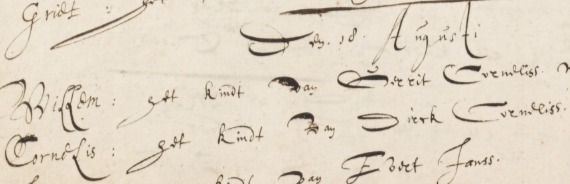 Griet : het
Den. 18. Augusti
Willem : het kindt Van Gerrit Corneliss.
Cornelis : het kindt Van Dirck Corneliss.
kindt Van Evert Janss.